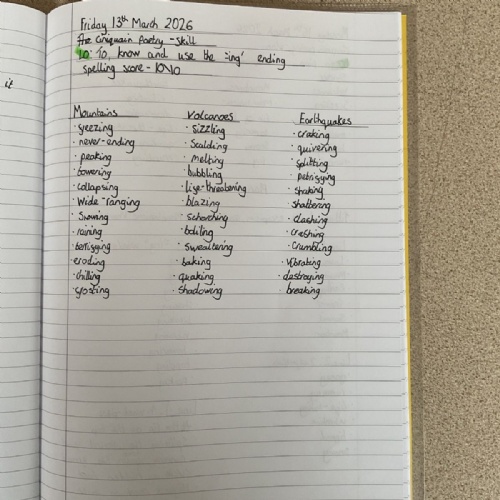 it
Friday 13th March 2026
The Cinquain Poetry - skill
LO: To, know and use the 'ing' ending
Spelling score - 10/10
Mountains
· freezing
· never-ending
· peaking
· towering
· collapsing
· Wide-ranging
· Snowing
· raining
· terrifying
· eroding
· chilling
· frosting
Volcanoes
· sizzling
· Scalding
· melting
· bubbling
· life-threatening
· blazing
· scorching
· boiling
· sweltering
· baking
· quaking
· Shadowing
Earthquakes
· craking
· quivering
· splitting
· petrifying
· shaking
· shattering
· clashing
· crashing
· Crumbling
· Vibrating
· destroying
· breaking